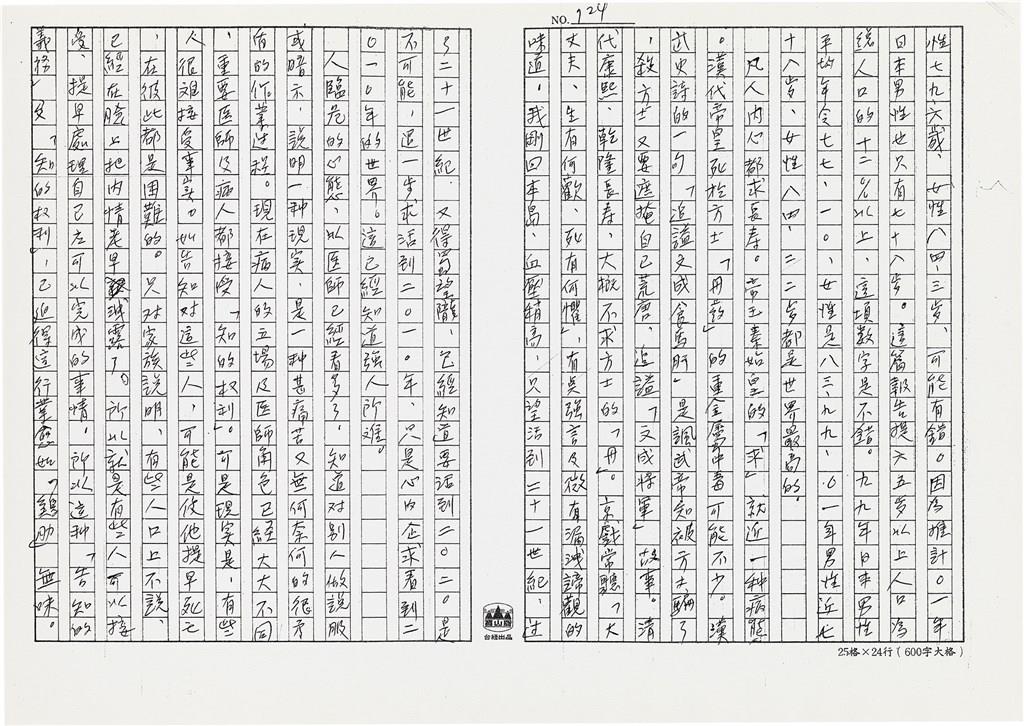 NO. 124
性七九、六歲、女性八四、三歲、可能有錯。因為推計○一年
日本男性也只有七十八歲。這篇報告提六五歲以上人口為
總人口的十二%以上、這項數字是不錯。九九年日本男性
平均年令七七、一○、女性是八三、九九、○一年男性近七
十八歲、女性八四、二二歲都是世界最高的。
凡人內心都求長壽。帝王秦始皇的「求」就近一種病態
。漢代帝皇死於方士「丹葯」的重金屬中毒可能不少。漢
武史詩的一句「追謚文成食馬肝」是諷武帝知被方士騙了
，殺方士又要遮掩自己荒唐、追謚「文成將軍」故事。清
代康熙、乾隆長寿、大概不求方士的「丹」。京戲常聽「大
丈夫、生有何歡、死有何懼」、有逞強言及微有漏洩諦觀的
味道。我剛回本島、血壓稍高、只望活到二十一世紀、过
了二十一世紀、又得蜀望隴、已經知道要活到二○二○是
不可能、退一步求活到二○一○年、只是心內企求看到二
○一○年的世界。這已經知道強人所難。
人臨危的心態、以医師已經看多了。知道对別人做說服
或暗示、說明一種現实、是一種甚痛苦又無何奈何的很矛
盾的作業过程。現在病人的立場及医師角色已經大大不同
、重要医師及病人都接受「知的权利」。可是現实是、有些
人很难接受事实、如告知对這些人、可能是促他提早死亡
、在彼此都是困難的。只对家族說明、有些人口上不說、
已經在臉上把內情老早洩露了。所以就是有些人可以接
受、提早處理自己左可以完成的事情。所以這种「告知的
義務」及「知的权利」、已迫得這行業愈如「鷄肋」無味。
台紙出品
25格×24行（600字大格）